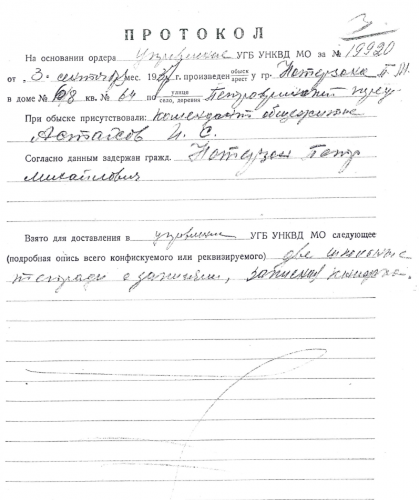 3.
ПРОТОКОЛ
На основании ордера Управление УГБ УНКВД МО за № 19920
от „3“ сентября мес. 193 г. произведен обыск арест у гр. П. М.
в доме № 68 кв. № 64 по улице село, деревня Петровский
При обыске присутствовали: комендант общежития
И. С.
Согласно данным задержан гражд. Петр
Михайлович
Взято для доставления в управление УГБ УНКВД МО следующее
(подробная опись всего конфискуемого или реквизируемого) две
тетради с записями, записная книжка.